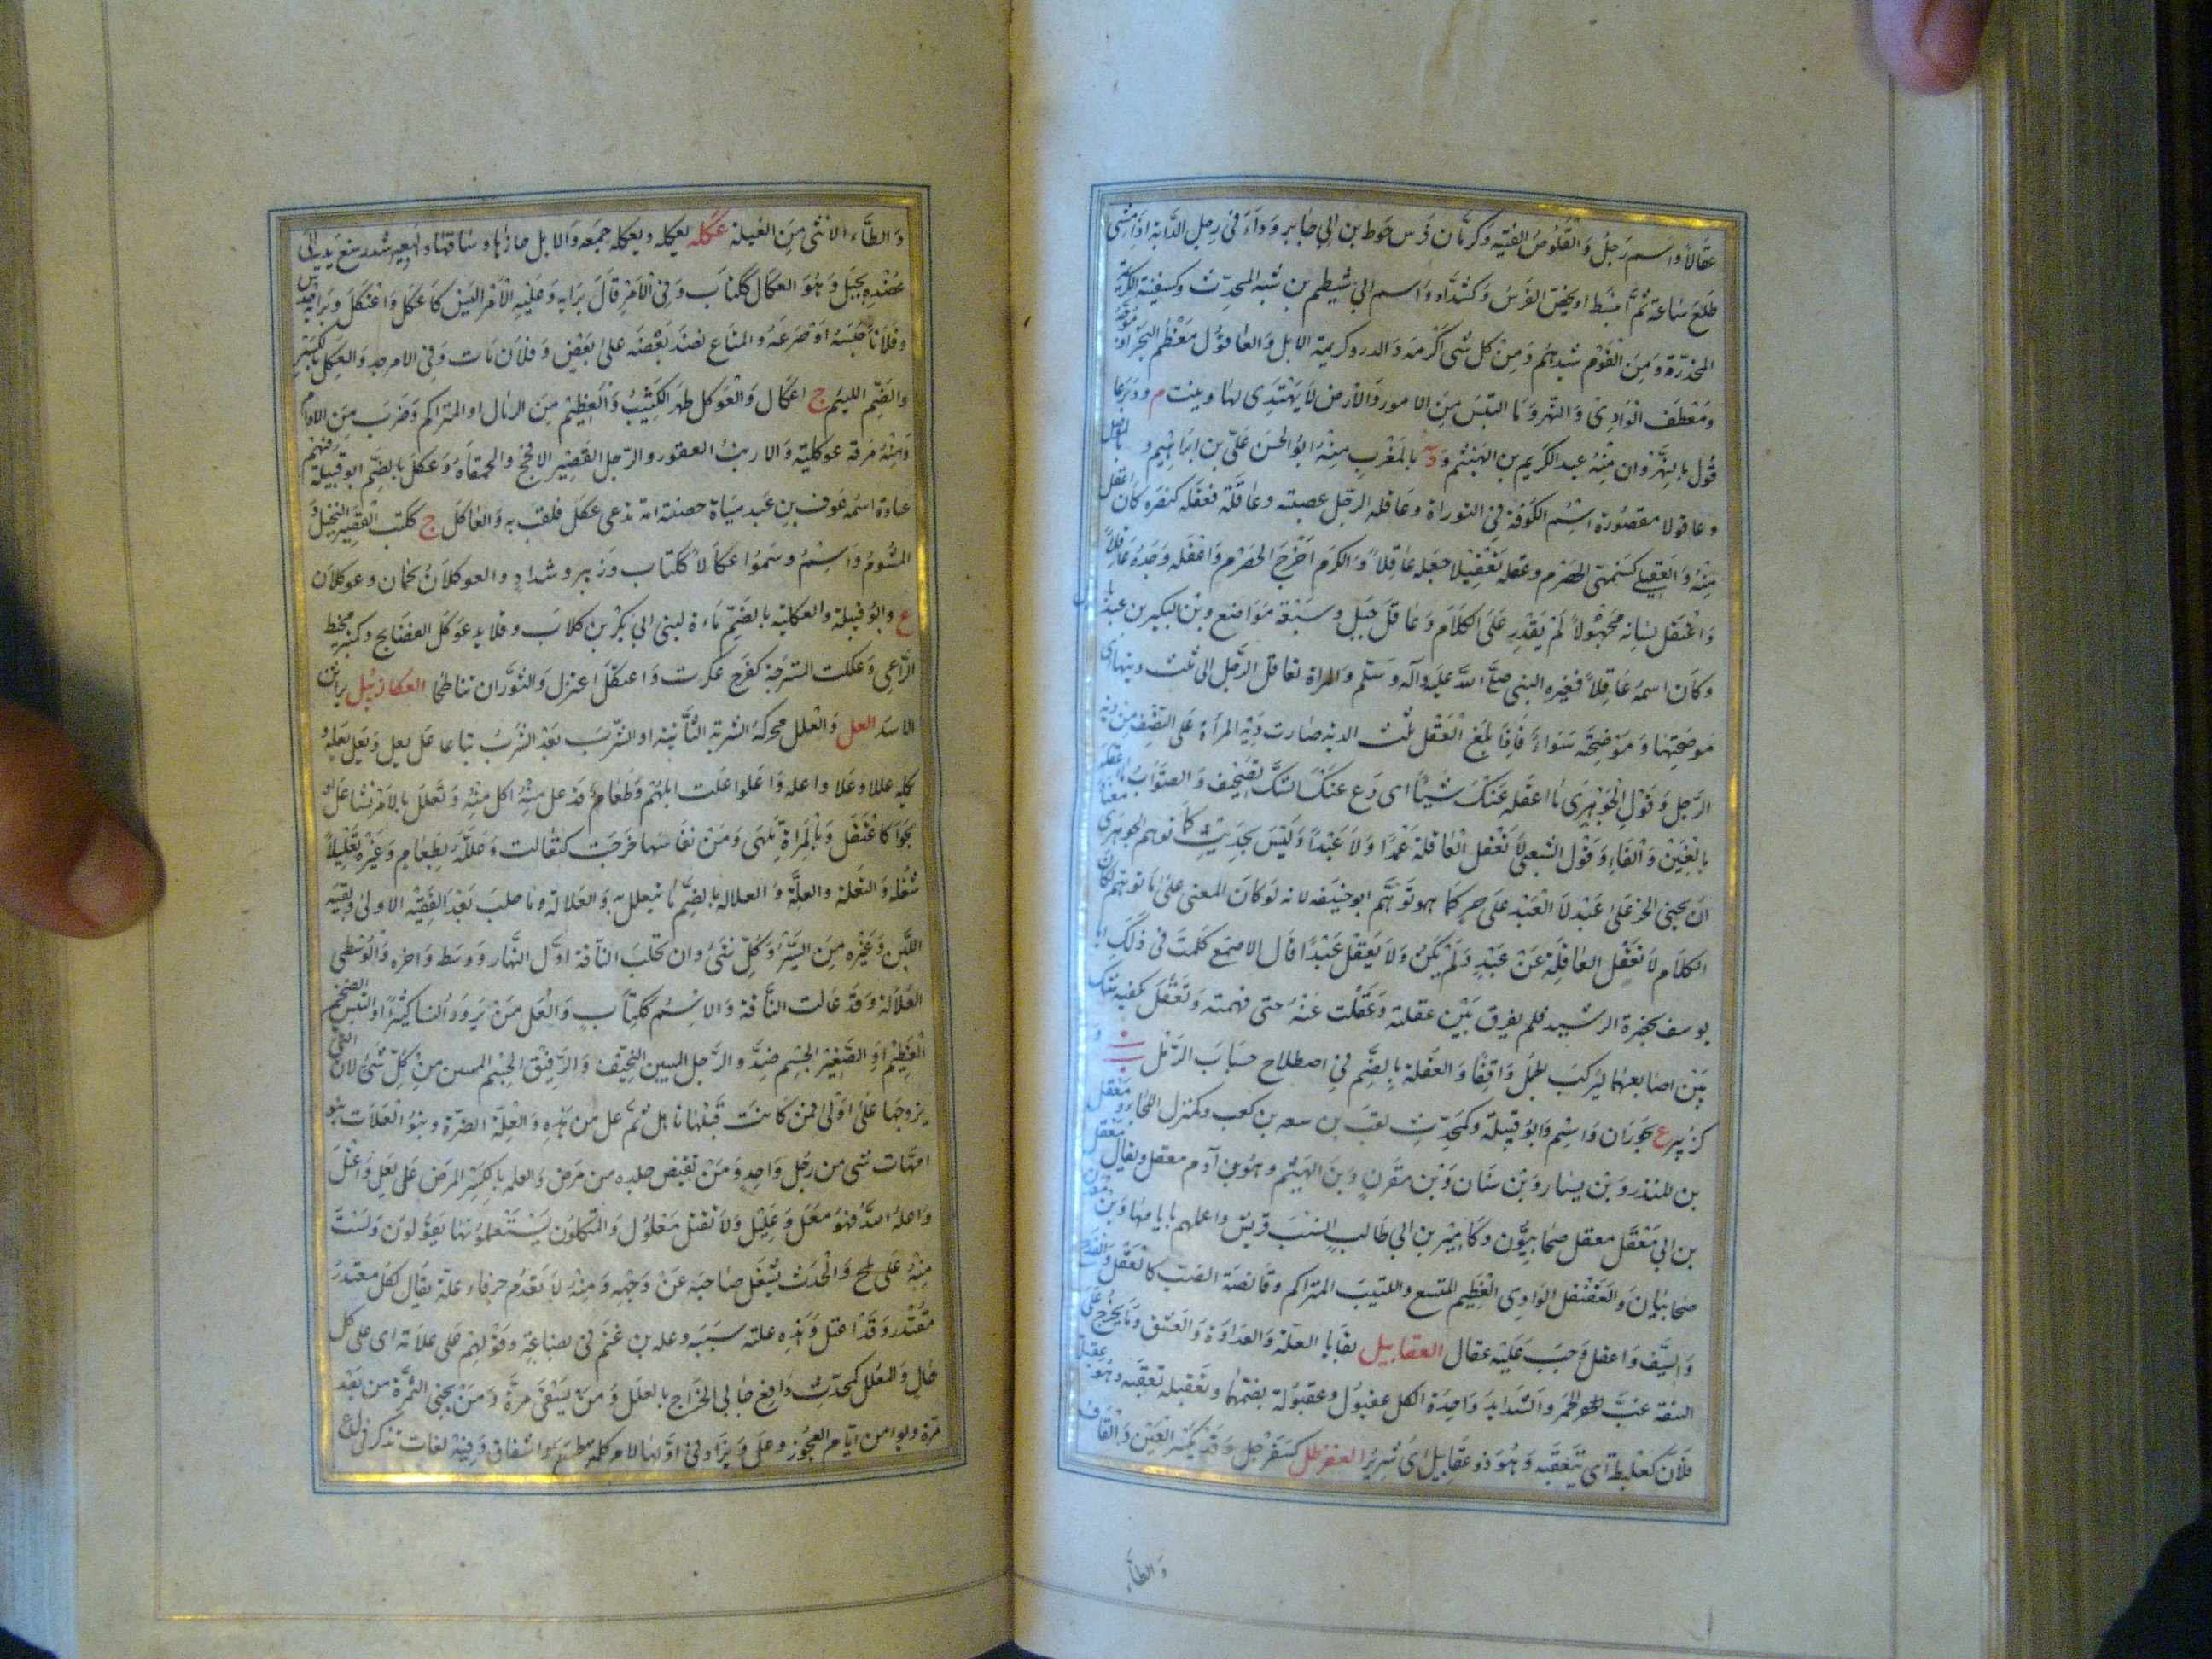 عقالا واسم رجل والقلوص الفتية وكرمان فرس حوط بن ابي جابر وداء في رجل الدابة اذا مشى
طلع ساعة ثم انبسط او يخص الفرس وكشداد واسم ابي شيظم بن شبه المحدث وكسفينة الكريمة
المخدرة ومن القوم سيدهم ومن كل شئ اكرمه والدر وكريمة الابل والعاقول معظم البحر او موجه
ومعطف الوادى والنهر وما التبس من الامور والارض لا يهتدى لها ونبت م ودير عا
قول بالنهروان منه عبد الكريم بن الهيثم و بالمغرب منه ابو الحسن على بن ابراهيم و
وعاقولا مقصورة اسم الكوفة في التوراة وعاقله الرجل عصبته وعاقلة فعقله كنصره كان اعقل
منه والعقيلى كسميهى الحصرم وعقله تعقيلا جعله عاقلا والكرم اخرج الحصرم واعقله وجده عاقلا
واعتقل لسانه مجهولا لم يقدر على الكلام وعاقل جبل وسبعة مواضع وبن البكير بن عبد يا
وكان اسمه عاقلا فغيره النبي صلى الله عليه وآله وسلم والمراة تعاقل الرجل الى ثلث ديتها اى
موضحتها وموضحته سواء فاذا بلغ العقل ثلث الدية صارت دية المرأة على النصف من دية
الرجل وقول الجوهرى ما اعقله عنك شيئا اى دع عنك الشك تصحيف والصواب ما اغفله
بالغين والفاء وقول الشعبي لا تعقل العاقلة عمدا ولا عبدا وليس بحديث كما توهم الجوهرى معناه
ان يجنى الحر على عبد لا العبد على حر كما هو توهم ابو حنيفه لانه لو كان المعنى على ما توهم لكان
الكلام لا تعقل العاقلة عن عبد ولم يكن ولا يعقل عبدا قال الاصمع كلمت في ذلك ابا
يوسف بحضرة الرشيد فلم يفرق بين عقلته وعقلت عنه حتى فهمته وتعقل كفيه شبك
بين اصابعهما ليركب الجمل واقفا والعقلة بالضم في اصطلاح حساب الرمل
كزبير ع بحوران واسم وابو قبيلة وكمحدث لقب بن سعه بن كعب وكمنزل اللجاء ومعقل
بن المنذر وبن يسار وبن سنان وبن مقرن وبن الهيثم وهو بن آدم معقل ويقال
بن ابي معقل معقل صحابيون وكامير بن ابي طالب انسب قريش واعلمهم بايامها وبن مقرن
صحابيان والعقنقل الوادى العظيم المتسع والكثيب المتراكم وقانصة الضب كالعقل والقدح
والسيف واعقل وجب عليه عقال العقابيل بقايا العلة والعداوة والعشق وما يخرج على
الشفة غب الحمى والشدايد واحدة الكل عقبول وعقبولة بضمهما وتعقبله تعقبه وهو عقبلة
فلان كعلبطة اى يتعقبه وهو ذو عقابيل اى شرير العقرطل كسفرجل وقد يكسر العين والقاف
والطاء
والطاء الانثى من الفيلة عكله يعكله ويعكله جمعه والابل حازها وساقها وبعيره شد رسغ يديه الى
عضده بحبل وهو العكال ككتاب وفي الامر قال برايه وعليه الامر التبس كاعكل واعتكل وبرايه حدس
وفلانا حبسه او صرعه والمتاع نضد بعضه على بعض وفلان مات وفي الامر جد والعكل بالكسر
والضم اللئيم ج اعكال والعوكل ظهر الكثيب والعظيم من الرمال او المتراكم وضرب من الادام
ومنه مرقة عوكلية والارنب العقور والرجل القصير الافحج والحمقاة وعكل بالضم ابو قبيلة فيهم
غباوة اسمه عوف بن عبد مناة حضنته امة تدعى عكل فلقب به والعاكل ج ككتب القصير البخيل و
المشوم واسم وسموا عكالا ككتاب وزبير وشداد والعوكلان نجمان وعوكلان
ع وابو قبيلة والعكلية بالضم ماءة لبنى ابي بكر بن كلاب وقلايد عوكل الفضايح وكمنبر مخيط
الراعى وعكلت المسرجة كفرح عكرت واعتكل اعتزل والثوران تناطحا العكازيل براثن
الاسد العل والعلل محركة الشربة الثانية او الشرب بعد الشرب تباعا عل يعل ويعل بعله و
بكله عللا وعلا واعله واعلوا علت ابلهم وطعام قد عل منه اكل منه وتعلل بالامر تشاغل او
تجزا كاعتل وبالمراة تلهى ومن نفاسها خرجت كتعالت وعلله بطعام وغيره تعليلا
شغله والتعلة والعلة والعلالة بالضم ما يتعلل به والعلالة وما حلب بعد الفيقة الاولى وبقية
اللبن وغيره من السير وكل شئ وان تحلب الناقة اول النهار ووسط واخره والوسطى
العلالة وقد عالت الناقة والاسم ككتاب والعل من يزور النسا كثيرا والتيس الضخم
العظيم او الصغير الجسم ضد والرجل المسن النحيف والرقيق الجسم المسن من كل شئ لان التى
يزوجها على اولى فمن كانت قبلها ناهل ثم عل من هذه والعلة الضرة وبنو العلات بنو
امهات شتى من رجل واحد ومن تقبض جلده من مرض والعله بالكسر المرض عل يعل واعتل
واعله الله فهو معل وعليل ولا تقل معلول والمتكلمون يستعملونها يقولون ولست
منه على ثلج والحدث يشغل صاحبه عن وجهه ومنه لا تعدم خرقاء علة يقال لكل معتذر
مقتدر وقد اعتل وهذه علته سببه وعله بن غنم في قضاعة وقولهم على علاته اى على كل
حال والمعلل كمحدث دافع جابي الخراج بالعلل ومن يسقى مرة ومن يجنى الثمرة من بعد
مرة ويوم من ايام العجوز وعل ويزاد في اولها لام كلمة طمع واشفاق وفيه لغات تذكر في لعل